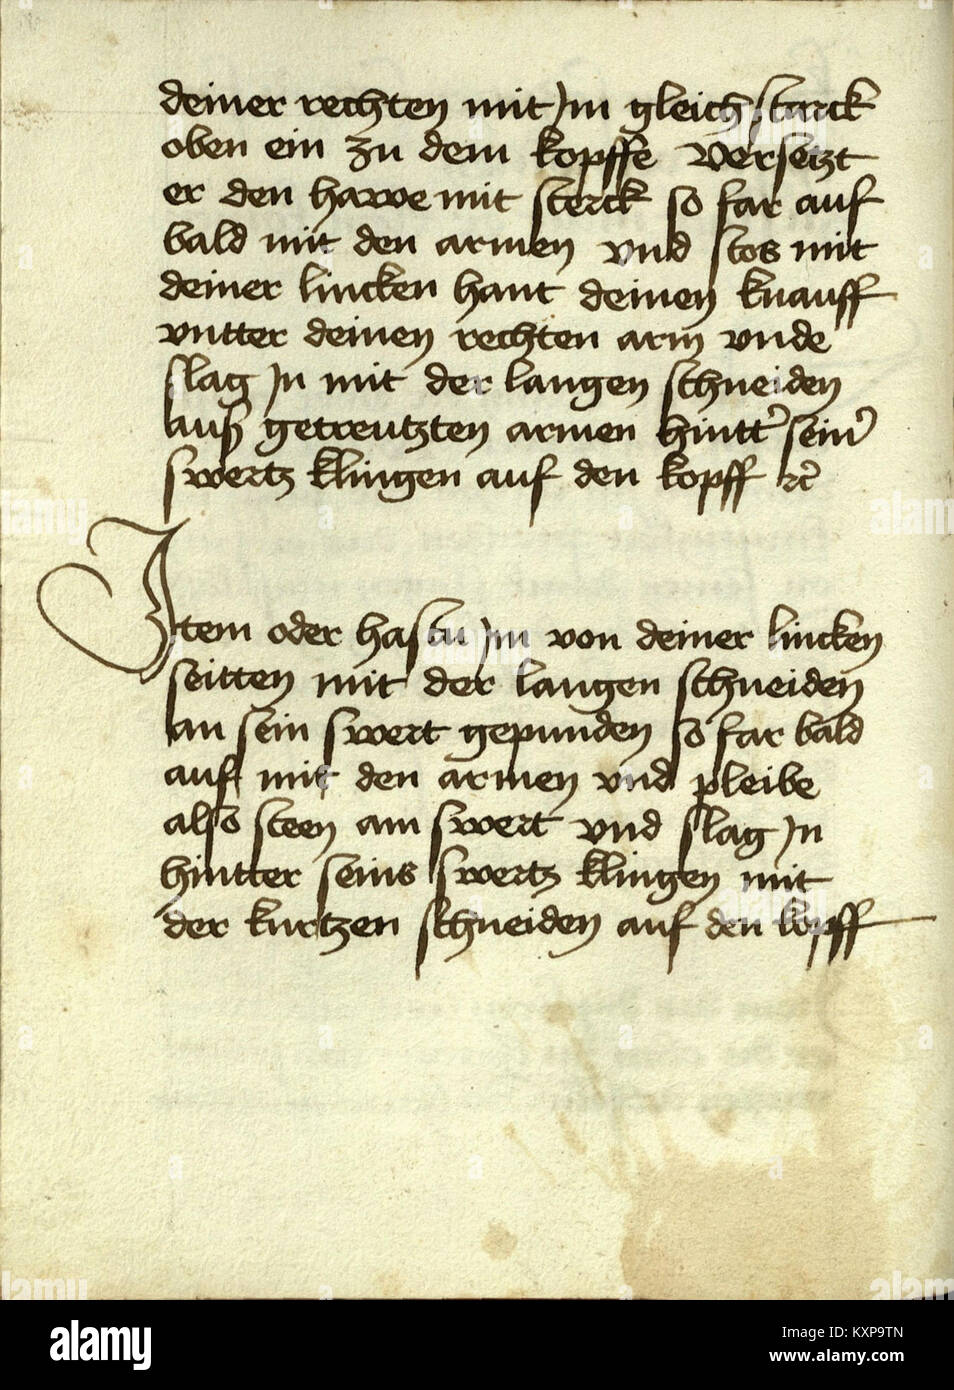 deiner rechten mit Im gleich starck
oben ein zu dem kopffe versetzt
er den hawe mit sterck so far auf
bald mit den armen vnd stos mit
deiner lincken hant deinen knauff
vntter deinen rechten arm vnde
slag In mit der langen schneiden
auß getreutzten armen hintt' sein'
swertz klingen auf den kopff rc̃
Item oder hastu Im von deiner lincken
seitten mit der langen schneiden
an sein swert gepunden so far bald
auf mit den armen vnd pleibe
also steen am swert vnd slag In
hintter seins swertz klingen mit
der kurtzen schneiden auf den kopff
alamy
Image ID: KXP9TN
www.alamy.com